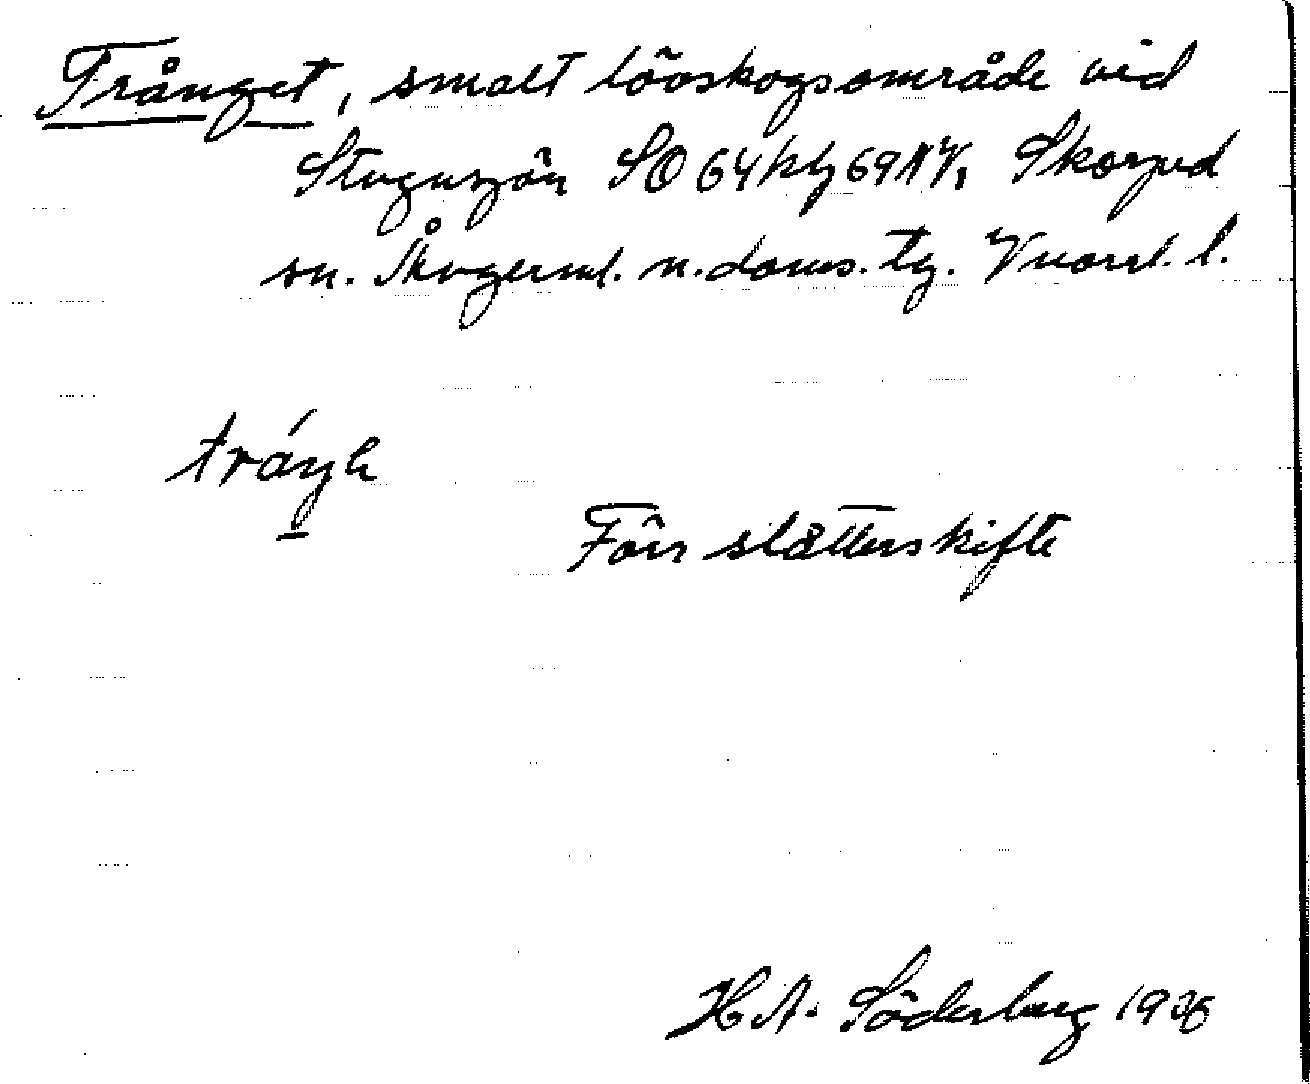 Trånget, smalt lövskogsområde vid
Stugusjön SO 64 h 69 NV, Skorped
sn. Ångerml. n. doms. tg. Vnorrl. l.
tráŋ
Förr slåtterskifte
H. A. Söderberg 1936